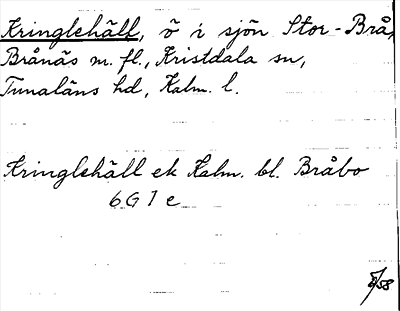 Kringlehäll, ö i sjön Stor-Brå,
Brånäs m. fl., Kristdala sn,
Tunaläns hd, Kalm. l.
Kringlehäll ek Kalm. bl. Bråbo
6G 1 e